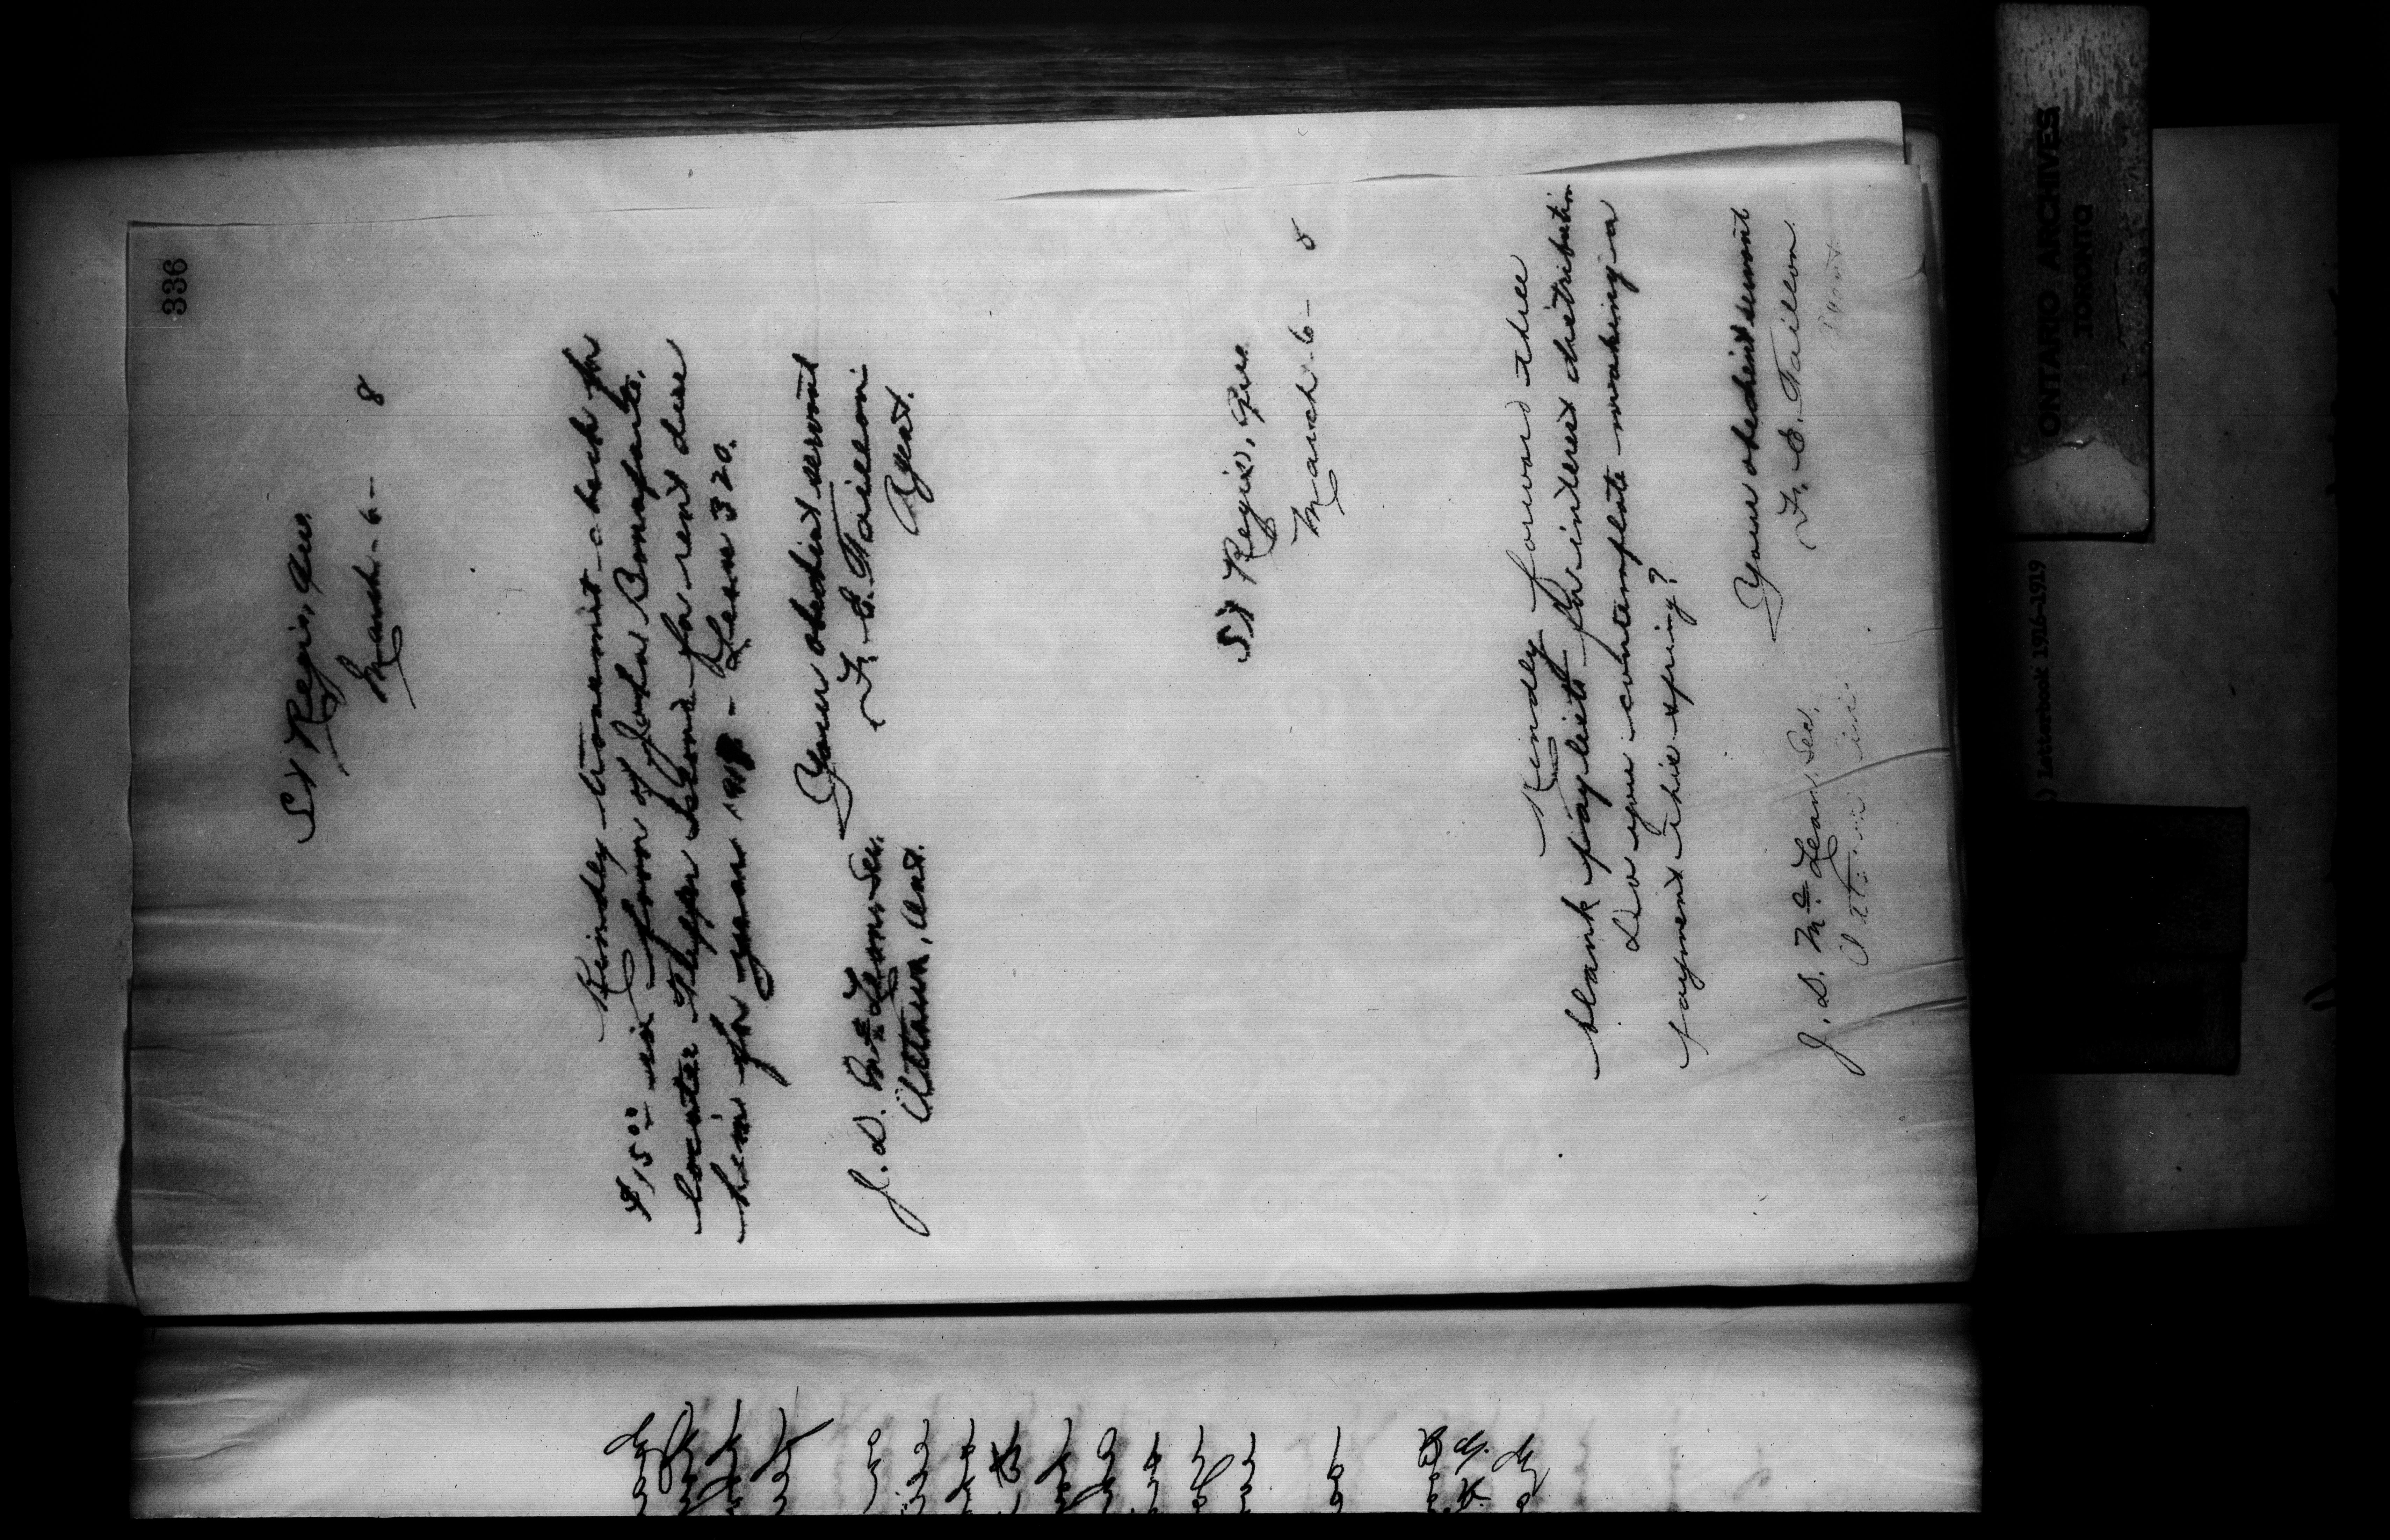 336
St Regis, Que.
March - 6 - 8
Kindly transmit check for
$15.00 in favor of John Bonaparte,
locatee for rent due
him for year 1918 - Lease 320.
Your obedient servant
F. E. Taillon
Agent.
J. D. McLean, Sec.
Ottawa, Ont.
St Regis, Que.
March 6 - 8
Kindly forward the
blank paylists for interest distribution
Do you contemplate making a
payment this spring?
Your obedient servant
F. E. Taillon.
Agent
J. D. McLean, Sec.
Ottawa
ONTARIO ARCHIVES
TORONTO
) Letterbook 1916-1919